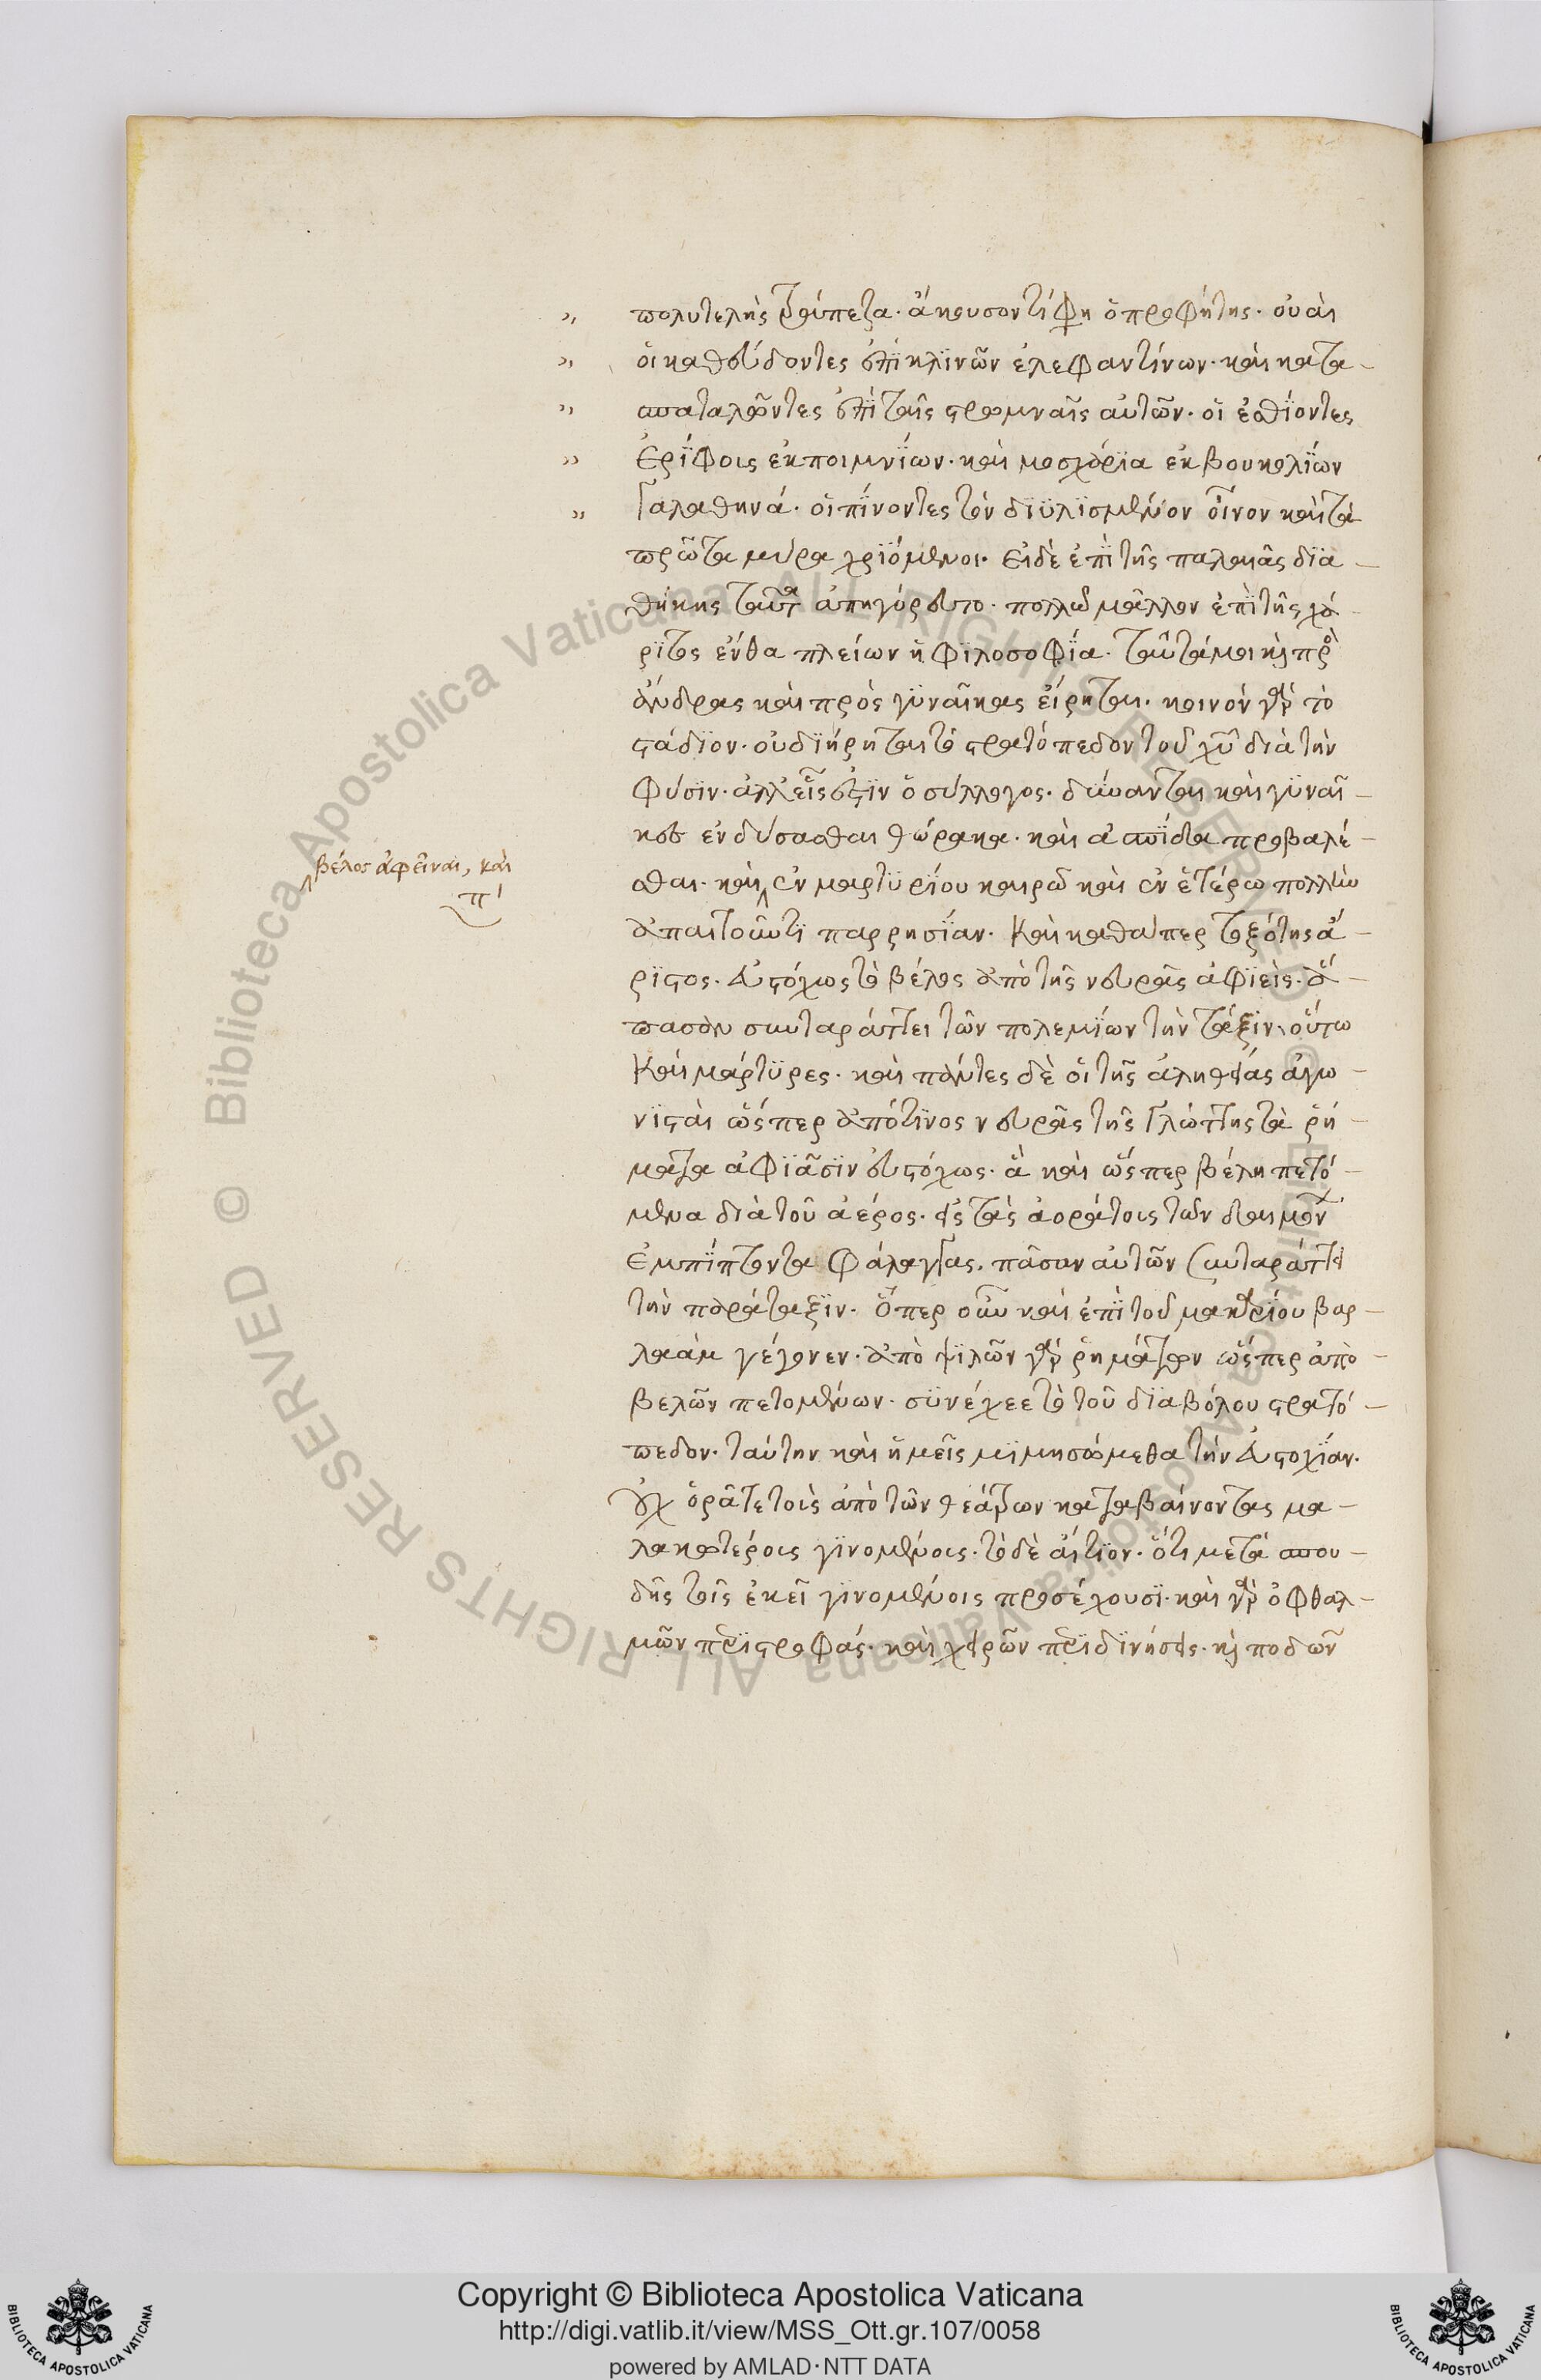 πολυτελὴς τράπεζα· ἄκουσον τί φη ὁ προφήτης· οὐαὶ
οἱ καθεύδοντες ἐπὶ κλινῶν ἐλεφαντίνων· καὶ κατα-
σπαταλῶντες ἐπὶ ταῖς στρωμναῖς αὐτῶν· οἱ ἐσθίοντες
ἐρίφους ἐκ ποιμνίων· καὶ μοσχάρια ἐκ βουκολίων
γαλαθηνά· οἱ πίνοντες τὸν διϋλισμένον οἶνον καὶ τὰ
πρῶτα μύρα χριόμενοι· εἰ δὲ ἐπὶ τῆς παλαιᾶς δια-
θήκης ταῦτα ἀπηγόρευτο· πολλῷ μᾶλλον ἐπὶ τῆς χά-
ριτος ἔνθα πλείων ἡ φιλοσοφία· ταῦτά μοι καὶ πρὸς
ἄνδρας καὶ πρὸς γυναῖκας εἴρηται· κοινὸν γὰρ τὸ
στάδιον· οὐ διήρηται τὸ στρατόπεδον τοῦ χυ διὰ τὴν
φύσιν· ἀλλ' εἷς ἐστὶν ὁ σύλλογος· δύνανται καὶ γυναῖ-
κες ἐνδύσασθαι θώρακα· καὶ ἀσπίδα προβαλέ-
σθαι· καὶ ἐν μαρτυρίου καιρῷ καὶ ἐν ἑτέρῳ πολλὴν
ἀπαιτοῦντι παρρησίαν· καὶ καθάπερ τοξότης ἄ-
ριστος· εὐστόχως τὸ βέλος ἀπὸ τῆς νευρᾶς ἀφιεὶς· ἅ-
πασαν συνταράττει τῶν πολεμίων τὴν τάξιν, οὕτω
καὶ μάρτυρες· καὶ πάντες δὲ οἱ τῆς ἀληθείας ἀγω-
νισταὶ ὥσπερ ἀπό τινος νευρᾶς τῆς γλώττης τὰ ῥή-
ματα ἀφιᾶσιν εὐστόχως· ἃ καὶ ὥσπερ βέλη πετό-
μενα διὰ τοῦ ἀέρος· εἰς τὰς ἀοράτους τῶν δαιμόνων
ἐμπίπτοντα φάλαγγας, πᾶσαν αὐτῶν συνταράττει
τὴν παράταξιν· ὅπερ οὖν καὶ ἐπὶ τοῦ μακαρίου βαρ-
λαὰμ γέγονεν· ἀπὸ ψιλῶν γὰρ ῥημάτων ὥσπερ ἀπὸ
βελῶν πετομένων· συνέχεε τὸ τοῦ διαβόλου στρατό-
πεδον· ταύτην καὶ ἡμεῖς μιμησώμεθα τὴν εὐστοχίαν·
οὐχ ὁρᾶτε τοὺς ἀπὸ τῶν θεάτρων καταβαίνοντας μα-
λακωτέρους γινομένους· τὸ δὲ αἴτιον· ὅτι μετὰ σπου-
δῆς τοῖς ἐκεῖ γινομένοις προσέχουσι· καὶ γὰρ ὀφθαλ-
μῶν περιστροφάς· καὶ χειρῶν περιδινήσεις· καὶ ποδῶν
βέλος ἀφεῖναι, καὶ
πί
© Biblioteca Apostolica Vaticana ALL RIGHTS RESERVED
© Biblioteca Apostolica Vaticana ALL RIGHTS RESERVED
Copyright © Biblioteca Apostolica Vaticana
http://digi.vatlib.it/view/MSS_Ott.gr.107/0058
powered by AMLAD·NTT DATA
BIBLIOTECA APOSTOLICA VATICANA
BIBLIOTECA APOSTOLICA VATICANA